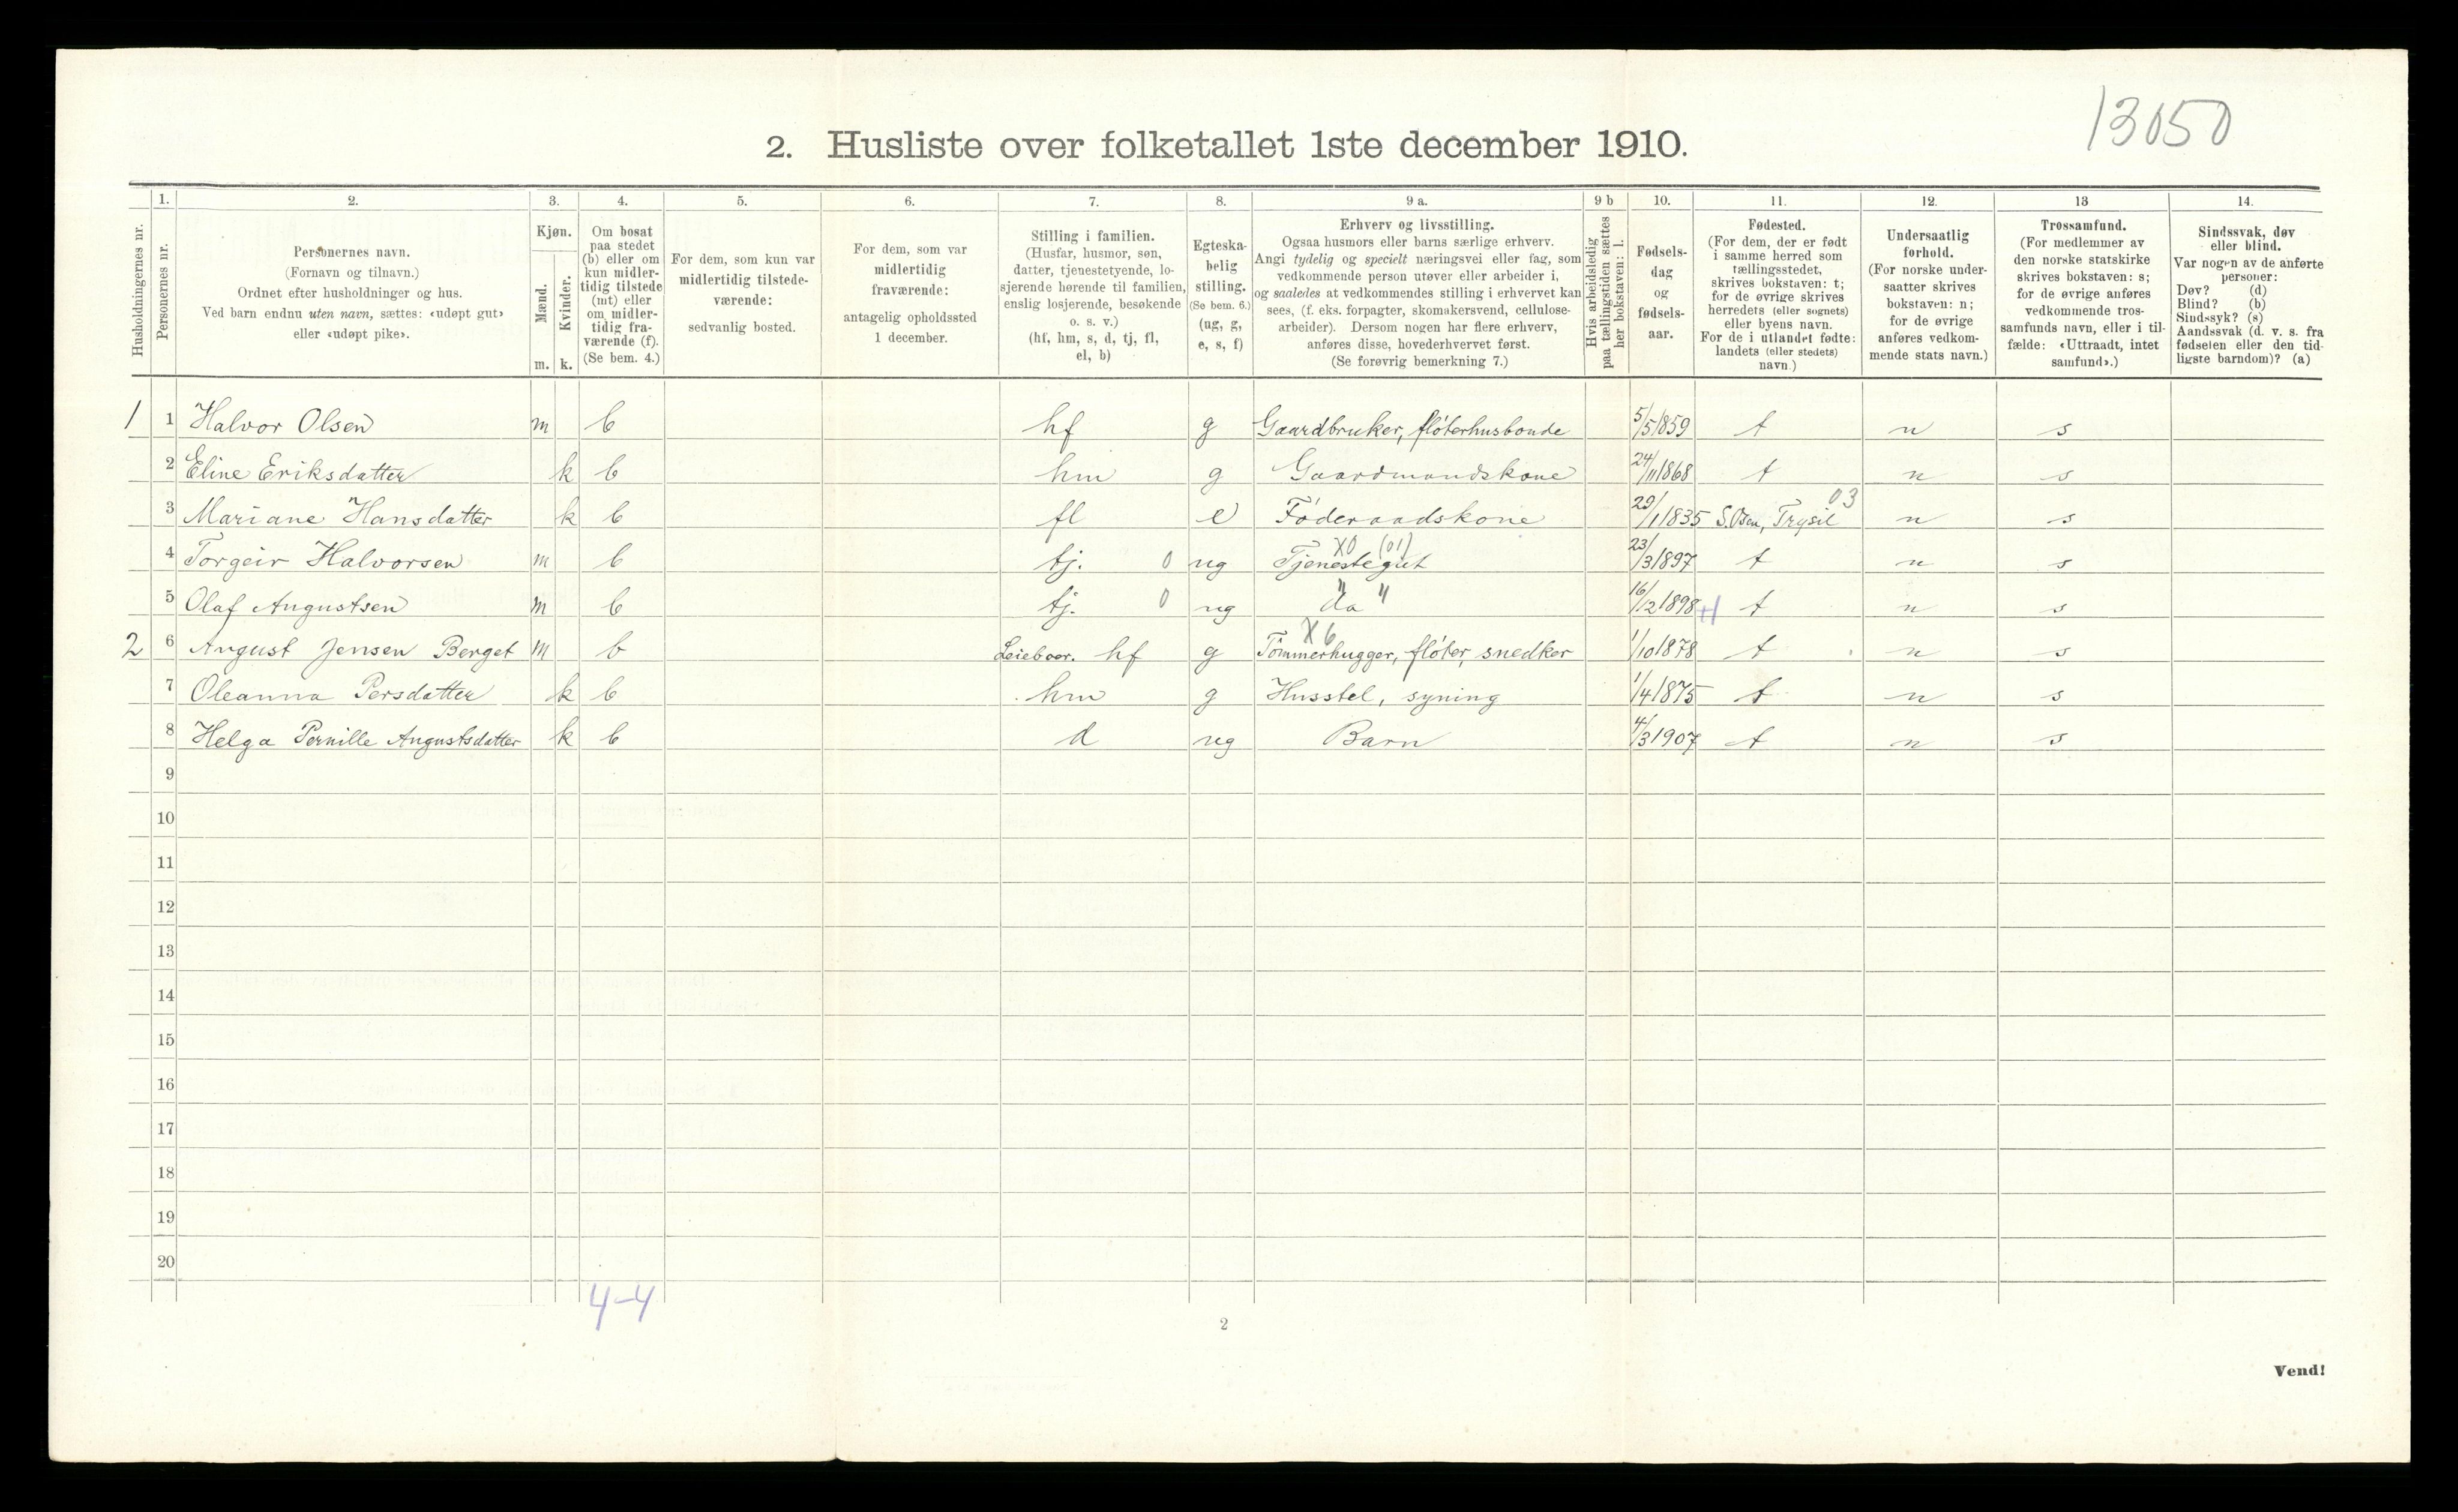 13050
2. Husliste over folketallet 1ste december 1910.
Husholdningernes nr.
1.
Personernes nr.
2.
Personernes navn.
(Fornavn og tilnavn.)
Ordnet efter husholdninger og hus.
Ved barn endnu uten navn, sættes: «udøpt gut»
eller «udøpt pike».
3.
Kjøn.
Mænd.
Kvinder.
m. k.
4.
Om bosat
paa stedet
(b) eller om
kun midler-
tidig tilstede
(mt) eller
om midler-
tidig fra-
værende (f).
(Se bem. 4.)
5.
For dem, som kun var
midlertidig tilstede-
værende:
sedvanlig bosted.
6.
For dem, som var
midlertidig
fraværende:
antagelig opholdssted
1 december.
7.
Stilling i familien.
(Husfar, husmor, søn,
datter, tjenestetyende, lo-
sjerende hørende til familien,
enslig losjerende, besøkende
o. s. v.)
(hf, hm, s, d, tj, fl,
el, b)
8.
Egteska-
belig
stilling.
(Se bem. 6.)
(ug, g,
e, s, f)
9 a.
Erhverv og livsstilling.
Ogsaa husmors eller barns særlige erhverv.
Angi tydelig og specielt næringsvei eller fag, som
vedkommende person utøver eller arbeider i,
og saaledes at vedkommendes stilling i erhvervet kan
sees, (f. eks. forpagter, skomakersvend, cellulose-
arbeider). Dersom nogen har flere erhverv,
anføres disse, hovederhvervet først.
(Se forøvrig bemerkning 7.)
9 b
Hvis arbeidsledig
paa tællingstiden sættes
her bokstaven: l.
10.
Fødsels-
dag
og
fødsels-
aar.
11.
Fødested.
(For dem, der er født
i samme herred som
tællingsstedet,
skrives bokstaven: t;
for de øvrige skrives
herredets (eller sognets)
eller byens navn.
For de i utlandet fødte:
landets (eller stedets)
navn.)
12.
Undersaatlig
forhold.
(For norske under-
saatter skrives
bokstaven: n;
for de øvrige
anføres vedkom-
mende stats navn.)
13
Trossamfund.
(For medlemmer av
den norske statskirke
skrives bokstaven: s;
for de øvrige anføres
vedkommende tros-
samfunds navn, eller i til-
fælde: «Uttraadt, intet
samfund».)
14.
Sindssvak, døv
eller blind.
Var nogen av de anførte
personer:
Døv? (d)
Blind? (b)
Sindssyk? (s)
Aandssvak (d. v. s. fra
fødselen eller den tid-
ligste barndom)? (a)
1 1 Halvor Olsen m b hf g Gaardbruker, fløterhusbonde 5/5 1859 t n s
2 Eline Eriksdatter k b hm g Gaardmandskone 24/11 1868 t n s
03
3 Mariane Hansdatter k b fl e Føderaadskone 29/1 1835 S. Osen, Trysil n s
X0 (01)
4 Torgeir Halvorsen m b tj. 0 ug Tjenestegut 23/3 1897 t n s
" "
5 Olaf Augustsen m b tj. 0 ug da 16/2 1898 t n s
X6
2 6 August Jensen Berget m b Leieboer. hf g Tømmerhugger, fløter, snedker 1/10 1878 t n s
7 Oleanna Persdatter k b hm g Husstel, syning 1/4 1875 t n s
8 Helga Pernille Augustsdatter k b d ug Barn 4/3 1907 t n s
9
10
11
12
13
14
15
16
17
18
19
20
4-4
2
Vend!